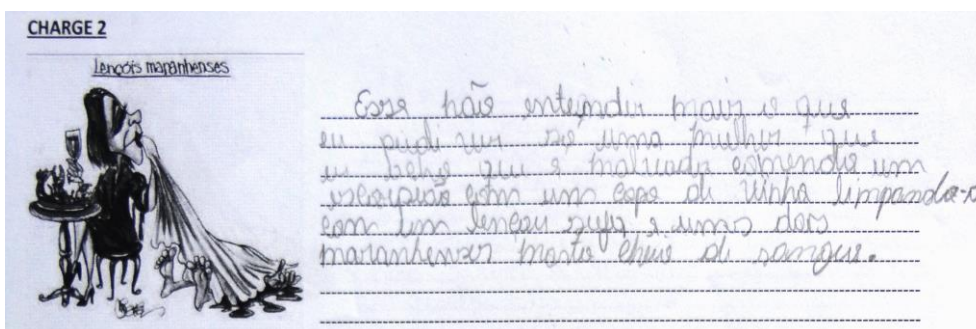 CHARGE 2
Lençóis maranhenses
Esse não entendir mais o que
eu pudi ver só uma mulher que
eu acho que e malvada comendo um
escorpião com um copo di vinho limpando-o
com um lençou sujo e uns dos
maranhenses morto cheio di sangue.